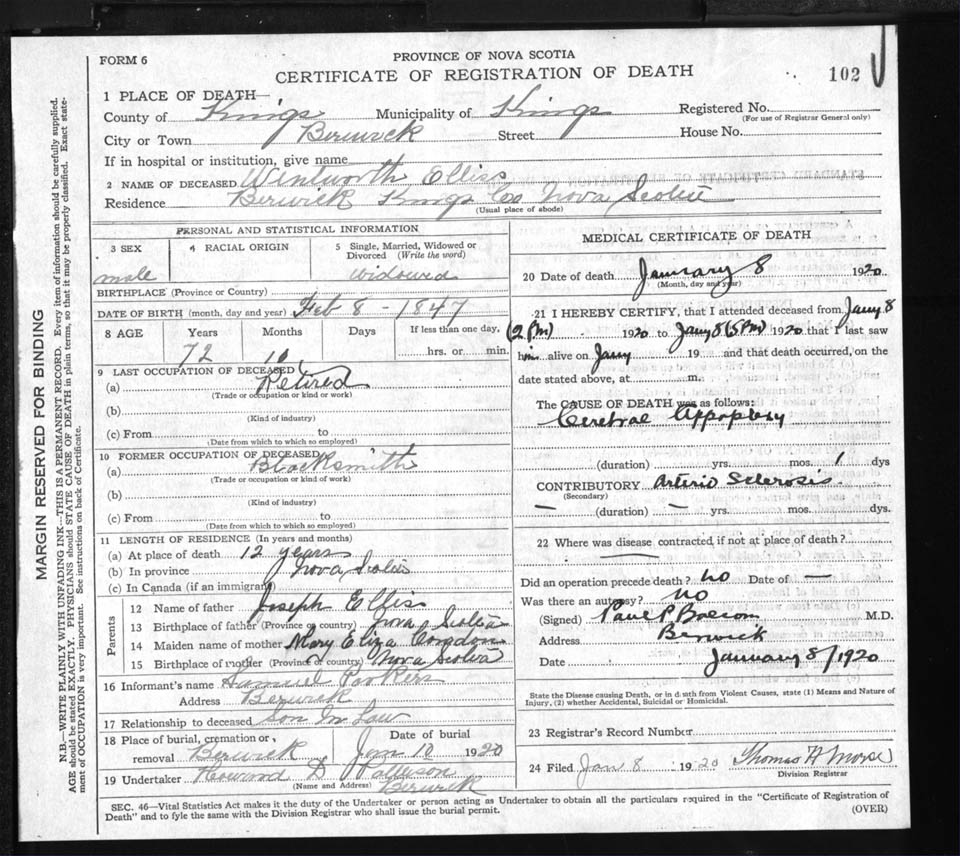 FORM 6
PROVINCE OF NOVA SCOTIA
CERTIFICATE OF REGISTRATION OF DEATH
102
1 PLACE OF DEATH—
County of Kings Municipality of Kings Registered No.
(For use of Registrar General only)
City or Town Berwick Street House No.
If in hospital or institution, give name
2 NAME OF DECEASED Wentworth Elliss
Residence Berwick Kings Co Nova Scotia
(Usual place of abode)
PERSONAL AND STATISTICAL INFORMATION
3 SEX 4 RACIAL ORIGIN 5 Single, Married, Widowed or
Divorced (Write the word)
male widowed
BIRTHPLACE (Province or Country)
DATE OF BIRTH (month, day and year) Feb 8 - 1847
8 AGE Years Months Days If less than one day,
72 10 hrs. or min.
9 LAST OCCUPATION OF DECEASED
(a) Retired
(Trade or occupation or kind or work)
(b)
(Kind of industry)
(c) From to
(Date from which to which so employed)
10 FORMER OCCUPATION OF DECEASED
(a) Blacksmith
(Trade or occupation or kind or work)
(b)
(Kind of industry)
(c) From to
(Date from which to which so employed)
11 LENGTH OF RESIDENCE (In years and months)
(a) At place of death 12 years
(b) In province Nova Scotia
(c) In Canada (if an immigrant)
Parents
12 Name of father Joseph Elliss
13 Birthplace of father (Province or country) Nova Scotia
14 Maiden name of mother Mary Eliza Congdon
15 Birthplace of mother (Province or country) Nova Scotia
16 Informant's name Samuel Parkers
Address Berwick
17 Relationship to deceased Son In Law
18 Place of burial, cremation or Date of burial
removal Berwick Jan 10 1920
19 Undertaker Howard D
(Name and Address) Berwick
MEDICAL CERTIFICATE OF DEATH
20 Date of death January 8 1920
(Month, day and year)
21 I HEREBY CERTIFY, that I attended deceased from Jany 8
(2 PM) 1920 to Jany 8 (5 PM) 1920 that I last saw
him alive on Jany 19 and that death occurred, on the
date stated above, at m.
The CAUSE OF DEATH was as follows:
Cerebral Appoplexy
(duration) yrs. mos. 1 dys
CONTRIBUTORY Arterio Sclerosis
(Secondary)
— (duration) — yrs. mos. dys.
22 Where was disease contracted, if not at place of death?
Did an operation precede death? no Date of —
Was there an autopsy? no
(Signed) Paul P. M.D.
Address Berwick
Date January 8/1920
State the Disease causing Death, or in deaths from Violent Causes, state (1) Means and Nature of
Injury, (2) whether Accidental, Suicidal or Homicidal.
23 Registrar's Record Number
24 Filed Jan 8 1920 Thomas H Morse
Division Registrar
SEC. 46—Vital Statistics Act makes it the duty of the Undertaker or person acting as Undertaker to obtain all the particulars required in the "Certificate of Registration of
Death" and to fyle the same with the Division Registrar who shall issue the burial permit. (OVER)
MARGIN RESERVED FOR BINDING
N.B.—WRITE PLAINLY WITH UNFADING INK—THIS IS A PERMANENT RECORD. Every item of information should be carefully supplied.
AGE should be stated EXACTLY. PHYSICIANS should STATE CAUSE OF DEATH in plain terms, so that it may be properly classified. Exact state-
ment of OCCUPATION is very important. See instructions on back of Certificate.